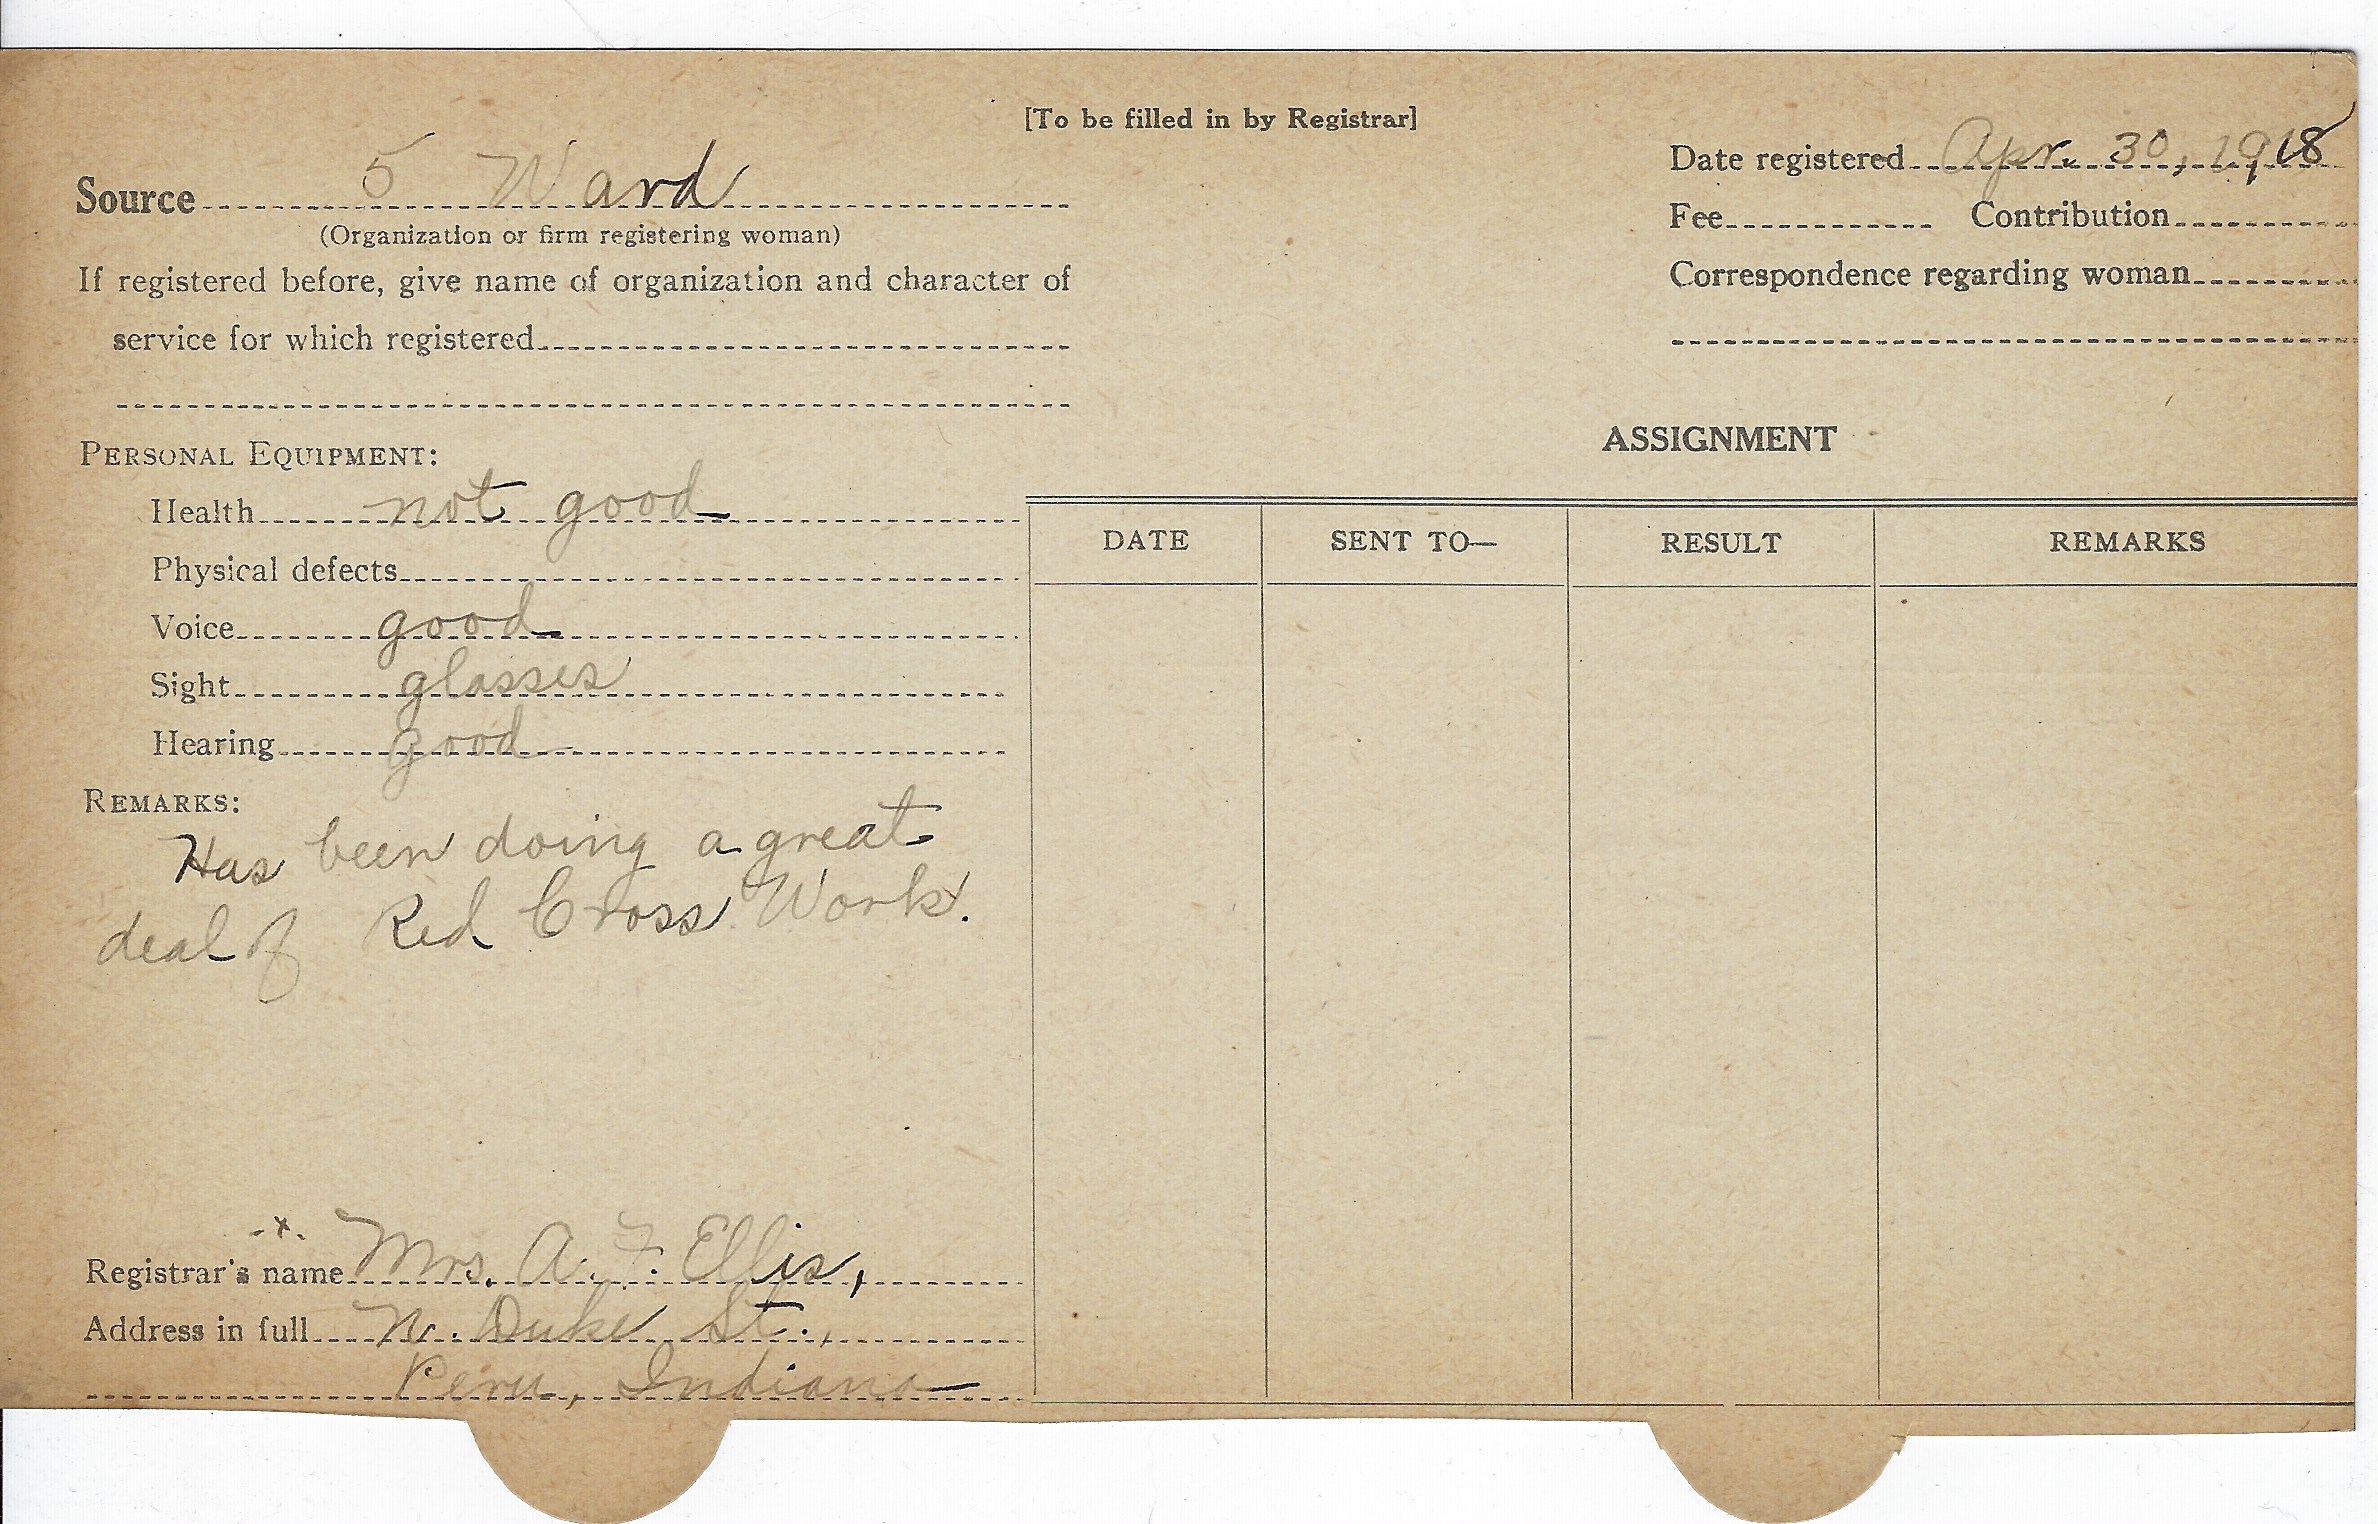 [To be filled in by Registrar]
Source 5 Ward
(Organization or firm registering woman)
If registered before, give name of organization and character of
service for which registered
Date registered Apr. 30, 1918
Fee Contribution
Correspondence regarding woman
PERSONAL EQUIPMENT:
Health not good
Physical defects
Voice good
Sight glasses
Hearing good
REMARKS:
Has been doing a great
deal of Red Cross Work.
Registrar's name Mrs. A. F. Ellis,
Address in full N. Duke St.,
Peru, Indiana
ASSIGNMENT
DATE SENT TO— RESULT REMARKS